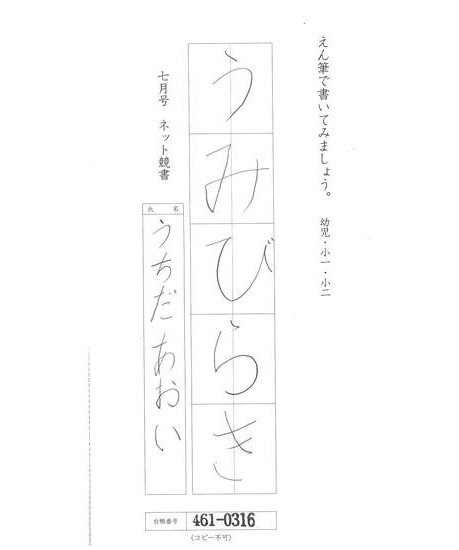 えん筆で書いてみましょう。 幼児・小一・小二
うみびらき
七月号 ネット競書
氏名
うちだあおい
台帳番号 461-0316
(コピー不可)